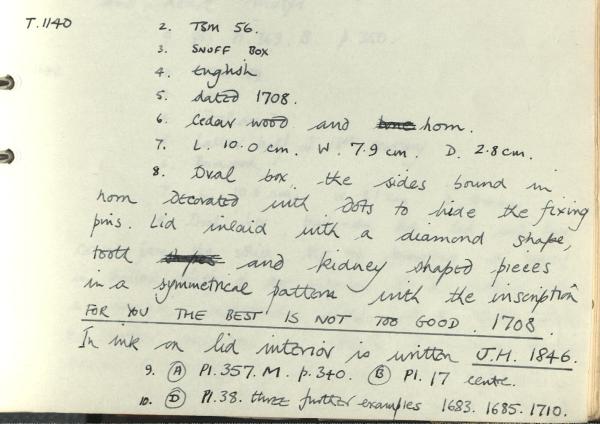 T.1140 2. TBM 56.
3. SNUFF BOX
4. English
5. dated 1708.
6. Cedar wood and bone horn.
7. L. 10.0 cm. W. 7.9 cm. D. 2.8 cm.
8. Oval box the sides bound in
horn decorated with dots to hide the fixing
pins. Lid inlaid with a diamond shape,
tooth shapes and kidney shaped pieces
in a symmetrical pattern with the inscription
FOR YOU THE BEST IS NOT TOO GOOD. 1708.
In ink on lid interior is written J.H. 1846.
9. (A) Pl. 357. M. p. 340. (B) Pl. 17 centre.
10. (D) Pl. 38. three further examples 1683. 1685. 1710.